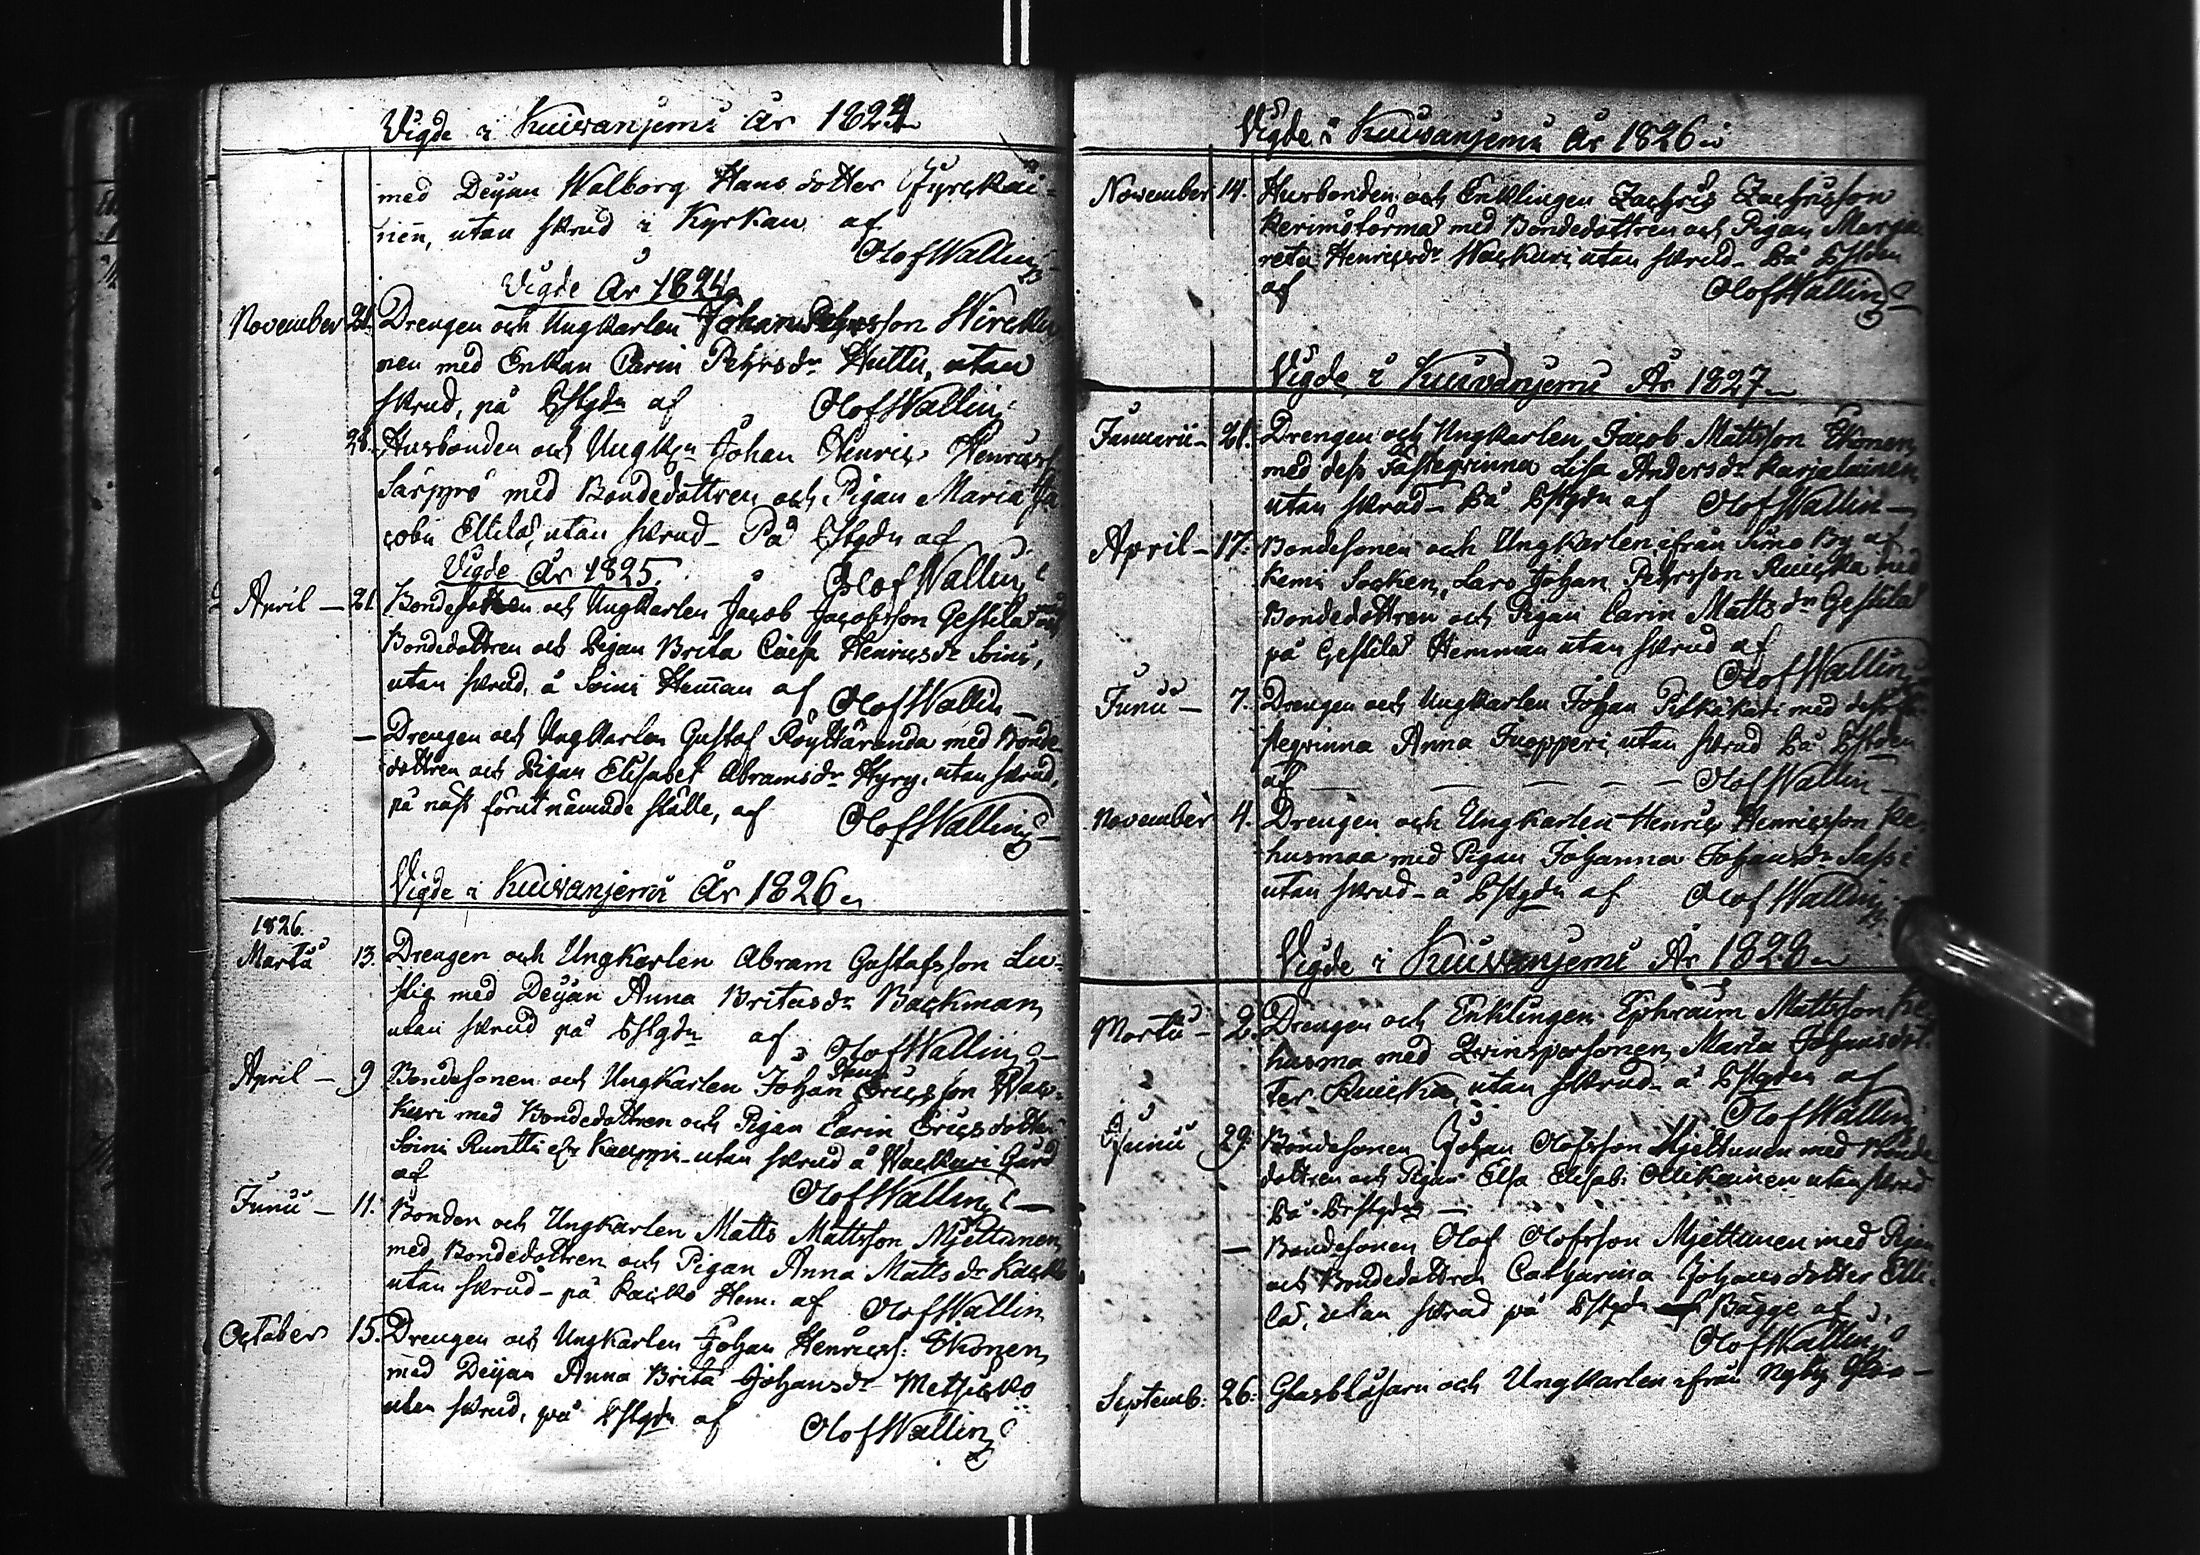 Vigde i Kuivaniemi År 1824
med Deijan Walborg Hans dotter Hyryskai-
nen, utan skrud i Kyrkan af
Olof Wallin
Vigde År 1824
November 21. Drengen och Ungkarlen Johan Pehrsson Wirckku
nen med Enkan Carin Pehrsdr Huttu, utan
skrud, på Pstgdn af Olof Wallin
28. Husbonden och Ungkn Johan Henric Henricss
Särpyrö med Bondedottren och Pigan Maria Ja
cobu Ellilä, utan skrud – På Pstgdn af
Olof Wallin
Vigde År 1825.
April – 21. Bondesonen och Ungkarlen Jacob Jacobsson Gestilä med
Bondedottren och Pigan Brita Caisa Henricsdr Soini,
utan skrud, å Soini Heman af Olof Wallin –
– Drengen och Ungkarlen Gustaf Röyttäranda med Bonde
dottren och Pigan Elisabet Abramsdr Hyry, utan skrud,
på näst förutnämnde ställe, af Olof Wallin –
Vigde i Kuivaniemi År 1826
1826.
Martii 13. Drengen och Ungkarlen Abram Gustafsson Lu-
stig med Deijan Anna Britasdr Backman,
utan skrud på Pstgdn af Olof Wallin –
April – 9 Bondesonen och Ungkarlen Johan Ericsson Wac-
kuri med Bondedottren och Pigan Carin Ericsdotter
Soini Runtti elr Kauppi – utan skrud å Wackuri Gård
af Olof Wallin –
Junii – 11. Bonden och Ungkarlen Matts Mattsson Mjettunen,
med Bondedottren och Pigan Anna Mattsdr Kacko
utan skrud – på Kacko Hem. af Olof Wallin
October 15. Drengen och Ungkarlen Johan Henricss: Ekonen,
med Deijan Anna Brita Johansdr Metsicko
utan skrud, på Pstgdn af Olof Wallin
Vigde i Kuivaniemi År 1826
November 14. Husbonden och Enklingen Zachris Zachrisson
Kerimstörmä med Bondedottren och Pigan Marga-
reta Henricsdr Wackuri utan skrud – På Pstgden
af Olof Wallin
Vigde i Kuivaniemi År 1827
Januarii – 21. Drengen och Ungkarlen Jacob Mattsson Ekonen,
med dess Fästeqvinna Lisa Andersdr Karjalainen,
utan skrud – På Pstgdn af Olof Wallin –
April – 17. Bondesonen och Ungkarlen ifrån Simo By af
Kemi Socken, Lars Johan Pehrsson Ruicka med
Bondedottren och Pigan Carin Mattsdr Gestilä
på Gestilä Hemman utan skrud af
Olof Wallin
Junii – 7. Drengen och Ungkarlen Johan Pitkäkari med dess fä-
steqvinna Anna Inopperi utan skrud På Pstgden
af – – – – – Olof Wallin –
November 4. Drengen och Ungkarlen Henric Henricsson Ke-
husmaa med Pigan Johanna Johansdr Sassi
utan skrud – å Pstgdn af Olof Wallin
Vigde i Kuivaniemi År 1828
Martii – 2. Drengen och Enklingen Ephraim Mattsson Ke-
husma med Qvinspersonen Maria Johansdot-
ter Ruicka, utan skrud – å Pstgden af
Olof Wallin
Junii 29. Bondesonen Johan Olofsson Mjettunen med Bonde
dottren och Pigan Elsa Elisab: Ollikainen utan skrud
På Prstgden –
– Bondesonen Olof Olofsson Mjettunen med Pigan
och Bondedottren Catharina Johansdotter Elli-
lä, utan skrud på Pstgdn Bägge af
Olof Wallin
Septemb: 26. Glasblåsarn och Ungkarlen ifrån Nyby Glas-